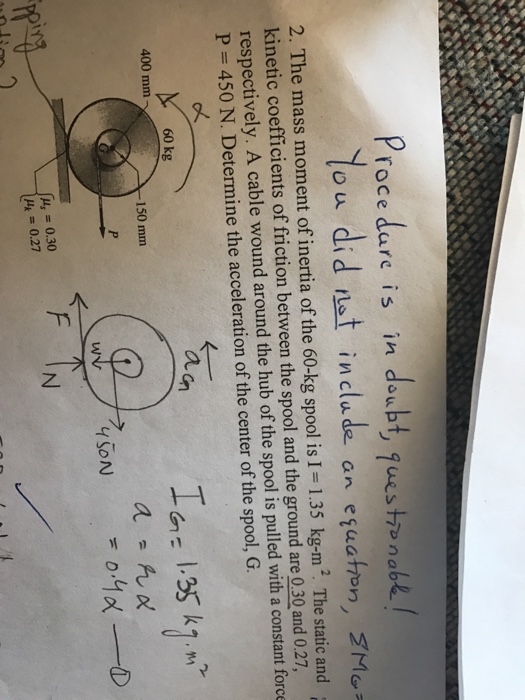 Procedure is in doubt, questionable!
You did not include an equation, ΣMG=
2. The mass moment of inertia of the 60-kg spool is I = 1.35 kg-m². The static and
kinetic coefficients of friction between the spool and the ground are 0.30 and 0.27,
respectively. A cable wound around the hub of the spool is pulled with a constant force
P = 450 N. Determine the acceleration of the center of the spool, G.
α
60 kg
400 mm
150 mm
G
P
μs = 0.30
μk = 0.27
aG
W
450N
F
N
IG = 1.35 kg.m²
a = rα
= 0.4α —①